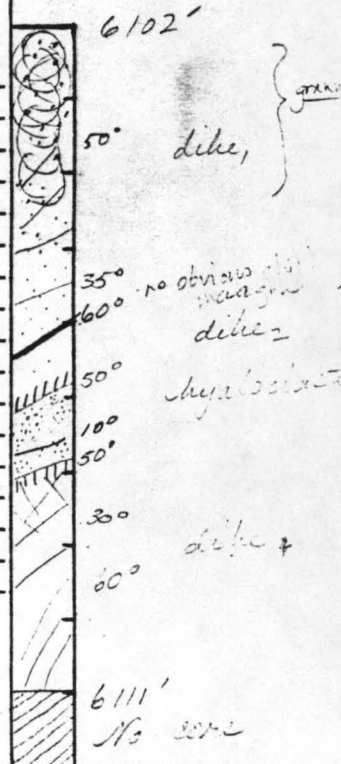 6102'
50°
dike,
35°
no obvious
60°
dike
50°
10°
50°
30°
dike
60°
6111'
No core